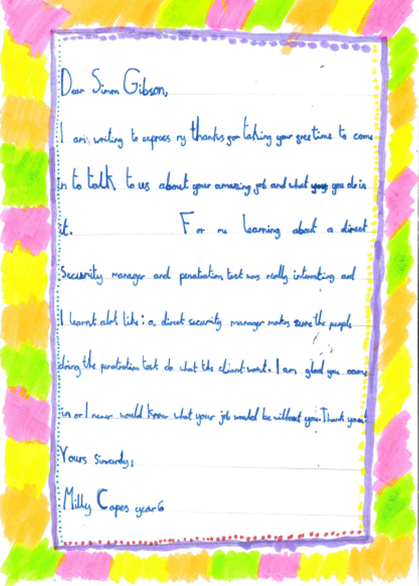 Dear Simm Gibson,
I am writing to express my thanks for taking your free time to come
in to talk to us about your amazing job and what you you do in
it. For me learning about a direct
Security manager and penatration test was really interesting and
I learnt alot like: a direct security manager makes sure the people
doing the penatration test do what the client want. I am glad you came
in or I never would know what your job would be without you. Thank you!
Yours sincerely,
Milly Capes year 6